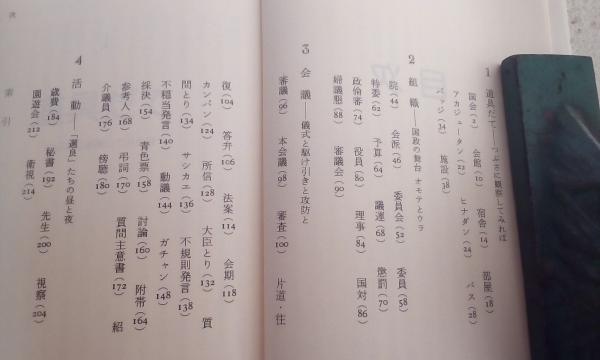 1 道具だて——つぶさに観察してみれば
国会(2) 会館(10) 宿舎(14) 部屋(18)
アカジュータン(22) ヒナダン(24) バス(28)
バッジ(34) 施設(38)
2 組織——国政の舞台 オモテとウラ
院(44) 会派(46) 委員会(52) 委員(58)
特委(62) 予算(64) 議運(68) 懲罰(70)
政倫審(74) 役員(80) 理事(84) 国対(86)
婦議懇(88) 審議会(90)
3 会議——儀式と駆け引きと攻防と
審議(96) 本会議(98) 審査(100) 片道・往
復(104) 答弁(106) 法案(114) 会期(118)
カンバン(124) 所信(128) 大臣とり(132) 質
問とり(134) サシカエ(136) 不規則発言(138)
不穏当発言(140) 動議(144) ガチャン(148)
採決(154) 青色票(158) 討論(160) 附帯(164)
参考人(168) 弔詞(170) 質問主意書(172) 紹
介議員(176) 傍聴(180)
4 活動——「選良」たちの昼と夜
歳費(184) 秘書(192) 先生(200) 視察(204)
園遊会(212) 衛視(214)
索引
次